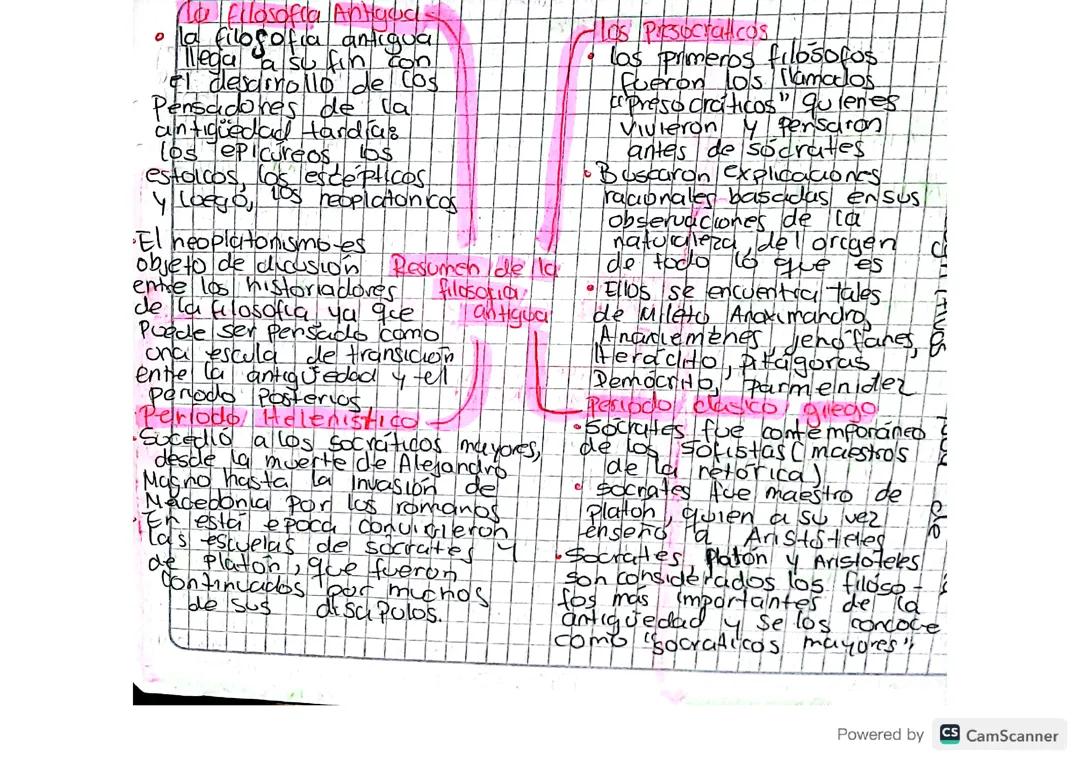 la filosofía Antigua
• la filosofía antigua
llega a su fin con
el desarrollo de los
Pensadores de la
antigüedad tardía:
los epicúreos los
estoicos, los escépticos
y luego, los neoplatónicos
• El neoplatonismo es
objeto de dicusión
entre los historiadores
de la filosofía ya que
Puede ser pensado como
una escula de transición
entre la antigüedad y el
período posterios
Periodo Helenístico
• Sucedió a los socráticos mayores,
desde la muerte de Alejandro
Magno hasta la invasión de
Macedonia por los romanos
• En está epoca convivieron
las escuelas de socrates y
de Platón, que fueron
continuados por muchos
de sus discípulos.
Resumen de la
filosofia
antigua
los Presocraticos
• los primeros filósofos
fueron los llamados
"presocráticos" quienes
vivieron y pensaron
antes de sócrates
• Buscaron explicaciones
racionales basadas en sus
observaciones de la
naturaleza, del origen
de todo lo que es
• Ellos se encuentra Tales
de Mileto Anaximandro,
Anaxiemenes, jenófanes,
Heráclito, pitágoras
Demócrito, parmenidez
Periodo clasico griego
• Sócrates fue contemporáneo
de los sofistas (maestros
de la retórica)
• socrates fue maestro de
platon, quien a su vez
enseñó a Aristóteles
• Socrates, Platón y Aristoteles
son considerados los filoso-
fos más importantes de la
antigüedad y se los conoce
como "socraticos mayores",
Powered by CS CamScanner